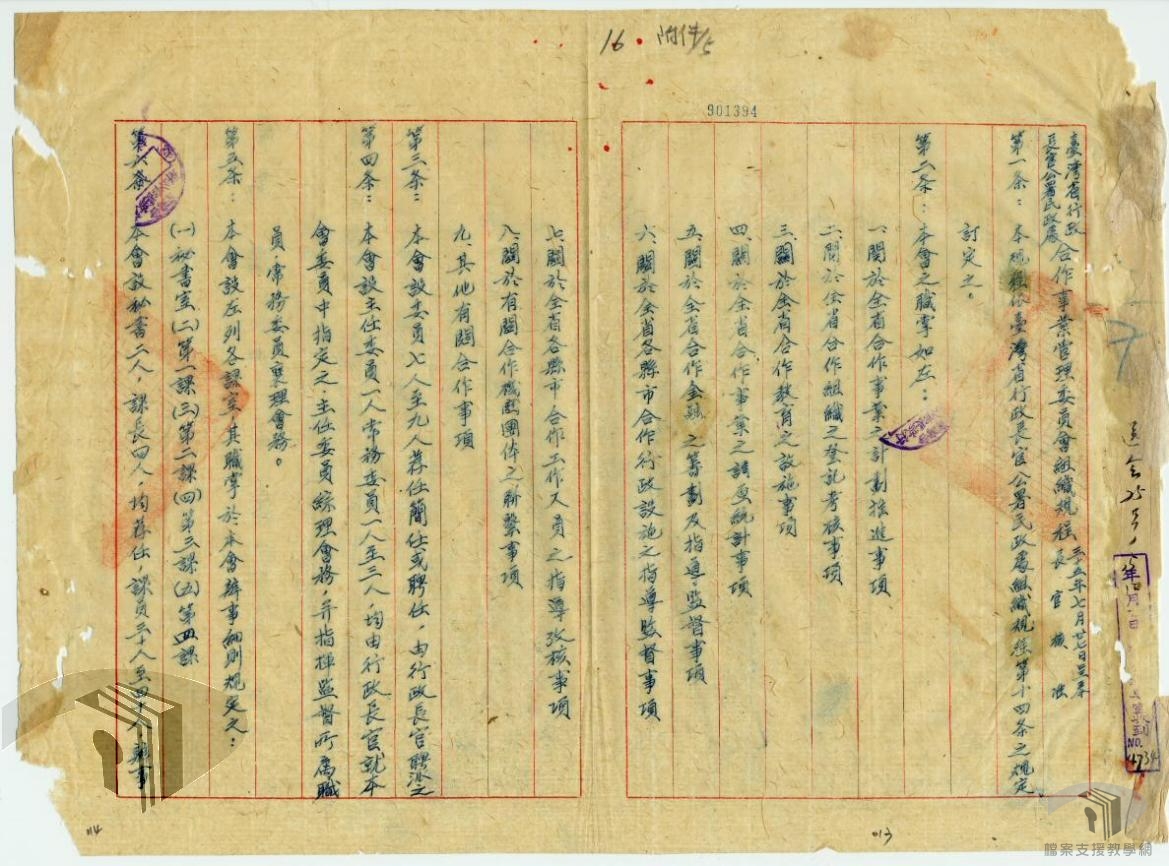 16. 附件5
901394
臺灣省行政
長官公署民政處
合作事業管理委員會組織規程
三十五年七月廿七日呈奉
長官核准
第一条：本規程依臺灣省行政長官公署民政處組織規程第十四条之規定
訂定之。
第二条：本會之職掌如左：
一、関於全省合作事業之計劃推進事項
二、関於全省合作組織之登記考核事項
三、関於全省合作教育之設施事項
四、関於全省合作事業之調查統計事項
五、関於全省合作金融之籌劃及指導監督事項
六、関於全省各縣市合作行政設施之指導監督事項
七、関於全省各縣市合作工作人員之指導攷核事項
八、関於有関合作機関團体之聯繫事項
九、其他有関合作事項
第三条：本會設委員七人至九人荐任簡任或聘任，由行政長官聘派之
第四条：本會設主任委員一人常務委員一人至三人，均由行政長官就本
會委員中指定之，主任委員綜理會務，并指揮監督所屬職
員，常務委員襄理會務。
第五条：本會設左列各課室，其職掌於本會辦事細則規定之：
(一)秘書室(二)第一課(三)第二課(四)第三課(五)第四課
第六条：本會設秘書二人，課長四人，均荐任，課員三十人至四十人，辦事
NO.
4734
113
114
檔案支援教學網